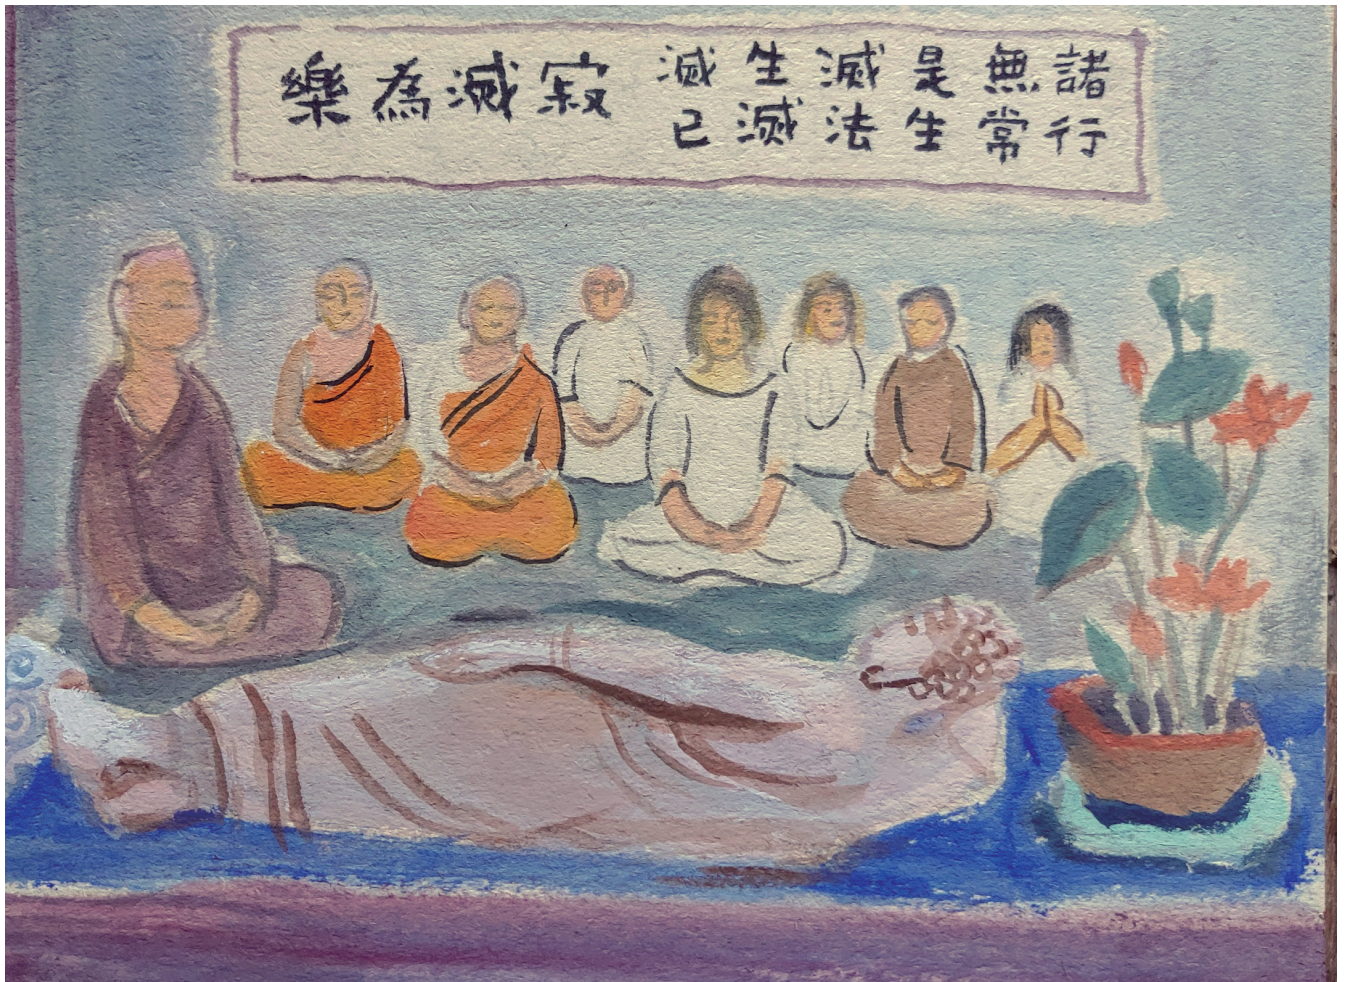 諸行
無常
是生
滅法
生滅
滅已
寂滅為樂